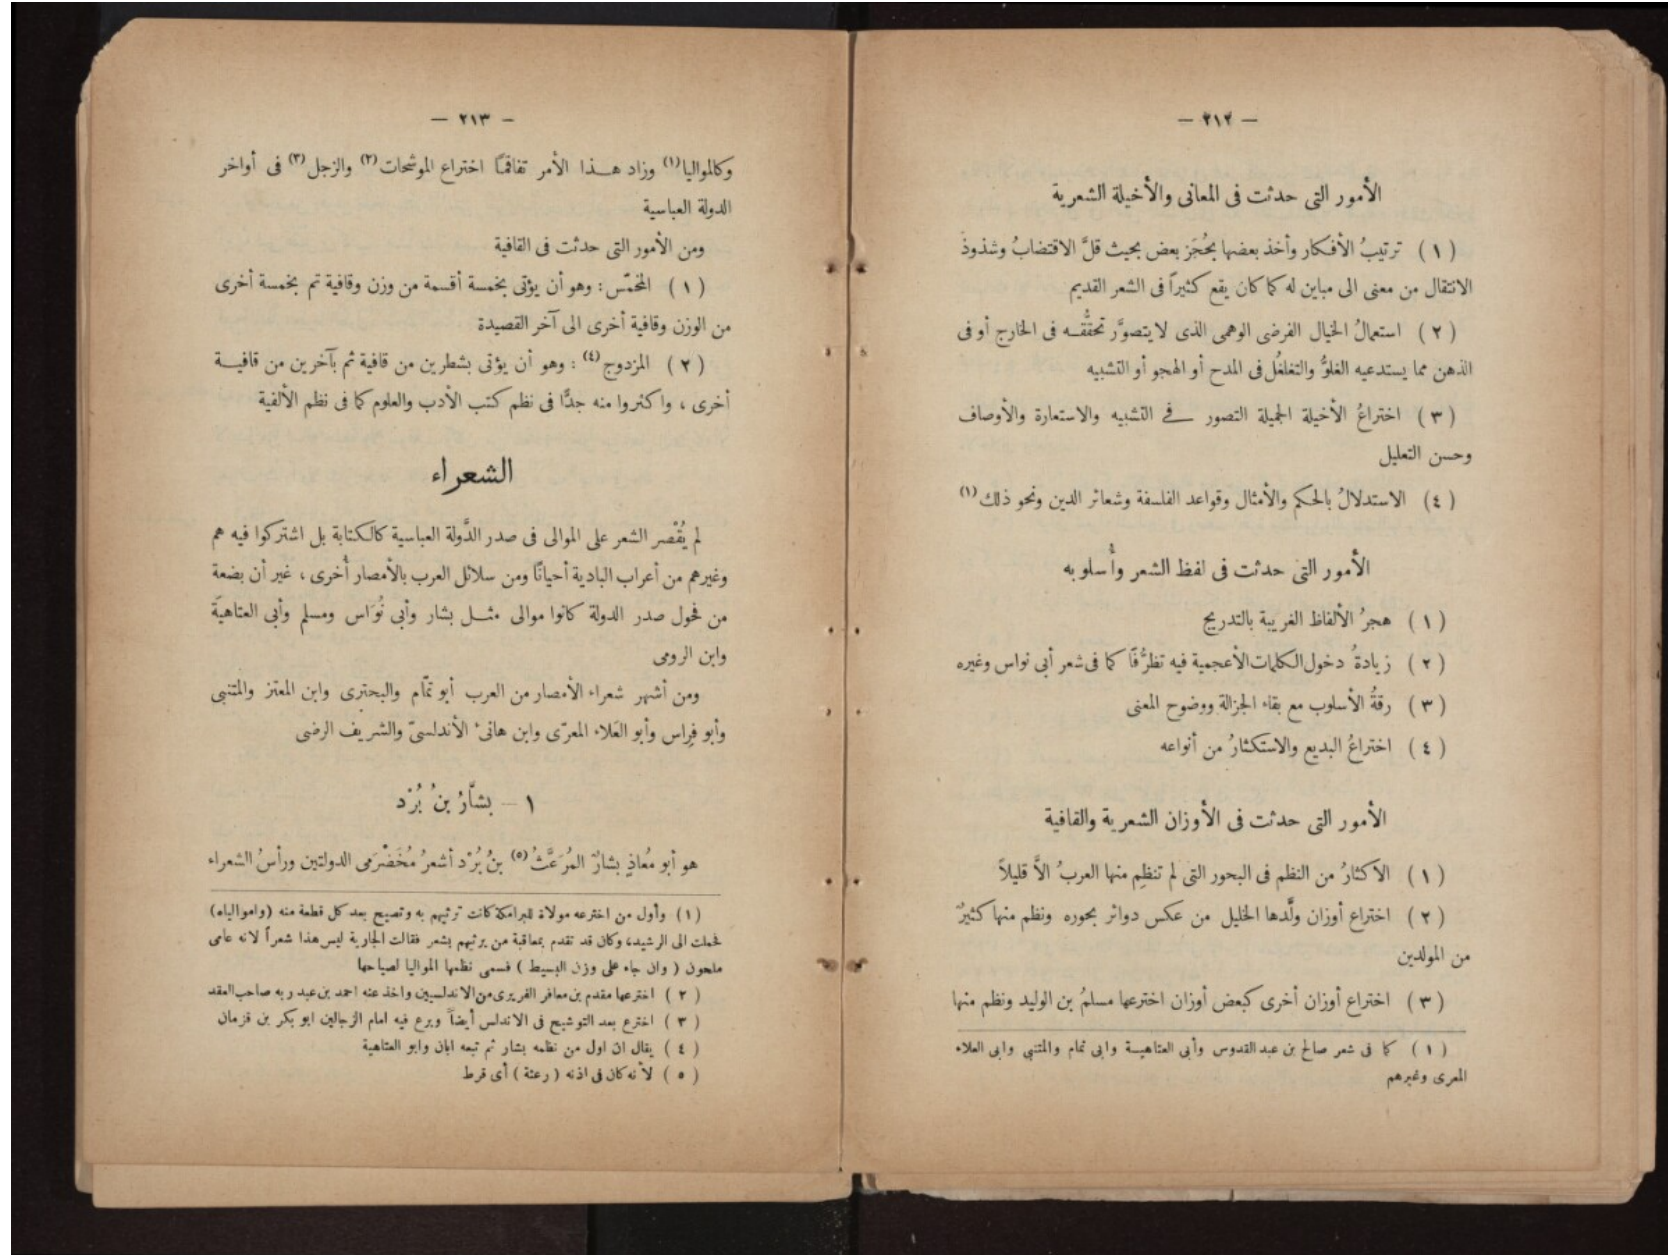 — ٢١٢ —
الأمور التى حدثت فى المعانى والأخيلة الشعرية
( ١ ) ترتيبُ الأفكار وأخذ بعضها بحُجَز بعض بحيث قلَّ الاقتضابُ وشذوذُ
الانتقال من معنى الى مباين له كما كان يقع كثيراً فى الشعر القديم
( ٢ ) استعمالُ الخيال الفرضى الوهمى الذى لا يتصوَّر تحقُّقـه فى الخارج أو فى
الذهن مما يستدعيه الغلوُّ والتغلغلُ فى المدح أو الهجو أو التشبيه
( ٣ ) اختراعُ الأخيلة الجميلة التصور فى التشبيه والاستعارة والأوصاف
وحسن التعليل
( ٤ ) الاستدلالُ بالحكم والأمثال وقواعد الفلسفة وشعائر الدين ونحو ذلك (١)
الأمور التى حدثت فى لفظ الشعر وأُسلوبه
( ١ ) هجرُ الألفاظ الغريبة بالتدريج
( ٢ ) زيادةُ دخول الكلمات الأعجمية فيه تظرُّفًا كما فى شعر أبى نواس وغيره
( ٣ ) رقةُ الأسلوب مع بقاء الجزالة ووضوح المعنى
( ٤ ) اختراعُ البديع والاستكثارُ من أنواعه
الأمور التى حدثت فى الأوزان الشعرية والقافية
( ١ ) الاكثارُ من النظم فى البحور التى لم تنظِم منها العربُ الاَّ قليلاً
( ٢ ) اختراع أوزان ولَّدها الخليل من عكس دوائر بحوره ونظم منها كثيرٌ
من المولدين
( ٣ ) اختراع أوزان أخرى كبعض أوزان اخترعها مسلمُ بن الوليد ونظم منها
( ١ ) كما فى شعر صالح بن عبد القدوس وأبى العتاهيـة وابى تمام والمتنبى وابى العلاء
المعرى وغيرهم
— ٢١٣ —
وكالمواليا (١) وزاد هـذا الأمر تفاقمًا اختراع الموشحات (٢) والزجل (٣) فى أواخر
الدولة العباسية
ومن الأمور التى حدثت فى القافية
( ١ ) المخمّس : وهو أن يؤتى بخمسة أقسمة من وزن وقافية تم بخمسة أخرى
من الوزن وقافية أخرى الى آخر القصيدة
( ٢ ) المزدوج (٤) : وهو أن يؤتى بشطرين من قافية ثم بآخرين من قافيـة
أخرى ، واكثروا منه جدًّا فى نظم كتب الأدب والعلوم كما فى نظم الألفية
الشعراء
لم يُقْصر الشعر على الموالى فى صدر الدَّولة العباسية كالكتابة بل اشتركوا فيه هم
وغيرهم من أعراب البادية أحيانًا ومن سلائل العرب بالأمصار أُخرى ، غير أن بضعة
من فحول صدر الدولة كانوا موالى مثـل بشار وأبى نُوَاس ومسلم وأبى العتاهيَة
وابن الرومى
ومن أشهر شعراء الأمصار من العرب أبو تمّام والبحترى وابن المعتز والمتنبى
وأبو فِراس وأبو العَلاء المعرّى وابن هانئ الأندلسىّ والشريف الرضى
١ — بشَّارُ بنُ بُرْد
هو أبو مُعاذٍ بشارٌ المُرَعَّثُ (٥) بنُ بُرْد أشعرُ مُخَضْرَمى الدولتين ورأسُ الشعراء
( ١ ) وأول من اخترعه مولاة للبرامكة كانت ترثيهم به وتصيح بعد كل قطعة منه (وامواليا‌ه)
فحملت الى الرشيد، وكان قد تقدم بمعاقبة من يرثيهم بشعر فقالت الجارية ليس هذا شعراً لانه عامى
ملحون ( وان جاء على وزن البسيط ) فسمى نظمها المواليا لصياحها
( ٢ ) اخترعها مقدم بن معافر الفريرى من الاندلسيين واخذ عنه احمد بن عبد ربه صاحب العقد
( ٣ ) اخترع بعد التوشيح فى الاندلس أيضاً وبرع فيه امام الزجالين ابو بكر بن قزمان
( ٤ ) يقال ان اول من نظمه بشار ثم تبعه ابان وابو العتاهية
( ٥ ) لأنه كان فى اذنه ( رعثة ) أى قرط